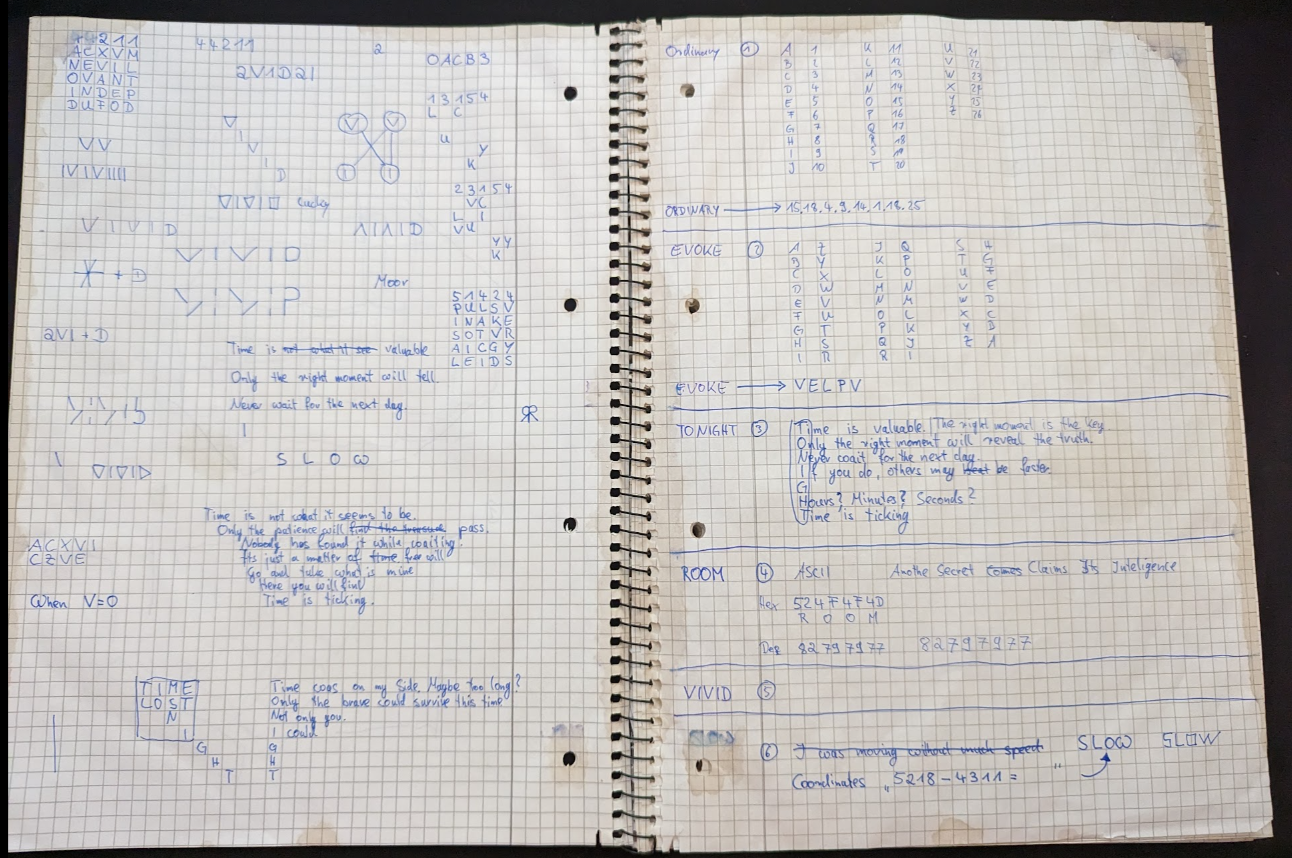 44211
ACXVM
NEVIL
OVANT
INDEP
DUFOD
44211
2
2V1D21
OACB3
13154
L C
U
Y
K
V
I
V
I
D
VV
IVIVIIII
VIVID
VIVID
+ D
2VI + D
23154
VC
L I
VU
YY
K
Moor
51424
PULSV
INAKE
SOTVR
AICGY
LEIDS
Time is not what it see valuable
Only the right moment will tell.
Never wait for the next day.
I
S L O W
Time is not what it seems to be.
Only the patience will find the treasure pass.
Nobody has found it while waiting
Its just a matter of time free will
Go and take what is mine
Here you will find
Time is ticking.
ACXVI
CZVE
When V=0
TIME
LOST
N
I
G
H
T
Time was on my side. Maybe too long?
Only the brave could survive this time
Not only you.
I could
G
H
T
Ordinary ① A 1 K 11 U 21
B 2 L 12 V 22
C 3 M 13 W 23
D 4 N 14 X 24
E 5 O 15 Y 25
F 6 P 16 Z 26
G 7 Q 17
H 8 R 18
I 9 S 19
J 10 T 20
ORDINARY → 15.18.4.9.14.1.18.25
EVOKE ② A Z J Q S H
B Y K P T G
C X L O U F
D W M N V E
E V N M W D
F U O L X C
G T P K Y B
H S Q J Z A
I R R I
EVOKE → VELPV
TONIGHT ③ Time is valuable. The right moment is the key.
Only the right moment will reveal the truth.
Never wait for the next day.
If you do, others may be faster
G
Hours? Minutes? Seconds?
Time is ticking
ROOM ④ ASCII Anothe Secret Comes Claims Its Inteligence
Hex 524F4F4D
R O O M
Dez 82797977 82797977
VIVID ⑤
⑥ I was moving without much speed SLOW SLOW
Coordinates „5218-4311 = "